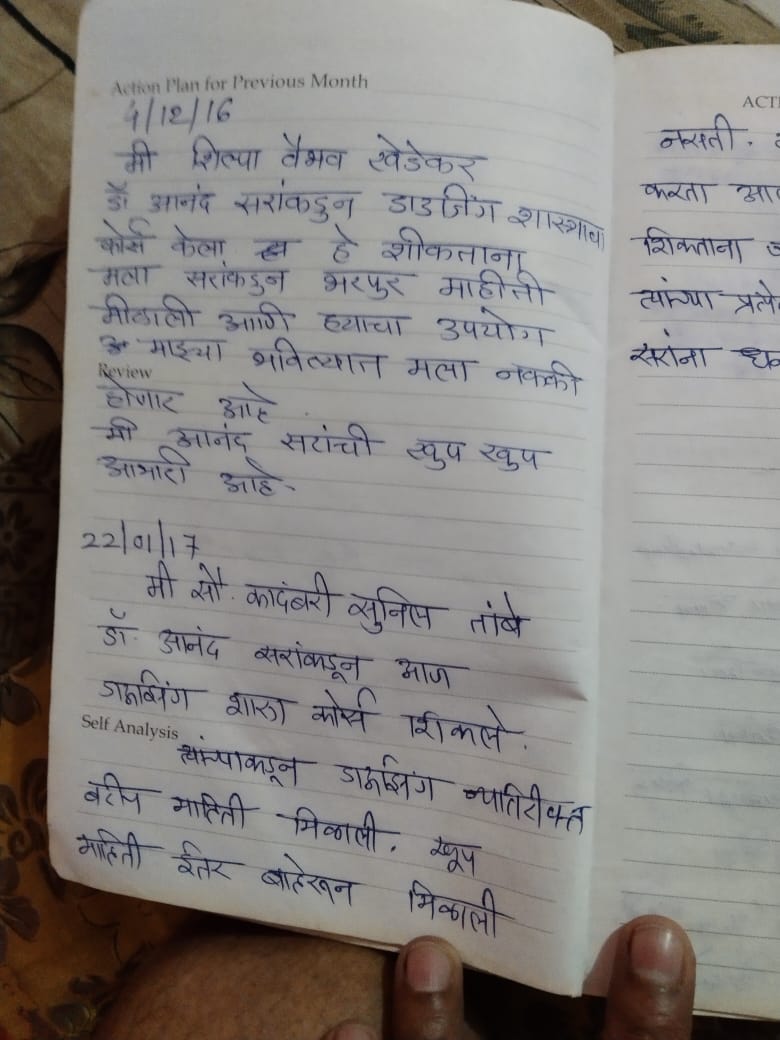 Action Plan for Previous Month
4/12/16
मी शिल्पा वैभव खेडेकर
डॉ आनंद सरांकडुन डाउजिंग शास्त्राचा
कोर्स केला हे शीकताना
मला सरांकडुन भरपुर माहीती
मीळाली आणि हयाचा उपयोग
माझ्या भवित्यात मला नक्की
Review
होणार आहे.
मी आनंद सरांची खुप खुप
आभारी आहे.
22/01/17
मी सौ. कादंबरी सुनिल तांबे
डॉ. आनंद सरांकडून आज
डाऊझिंग शास्त्र कोर्स शिकले.
Self Analysis
त्यांच्याकडून डाऊझिंग व्यातिरीक्त
बरीच माहिती मिळाली. खूप
माहिती ईतर बाहेरून मिळाली
ACTI
नसती.
करता आ
शिकताना
त्यांच्या प्रत्ये
सरांना